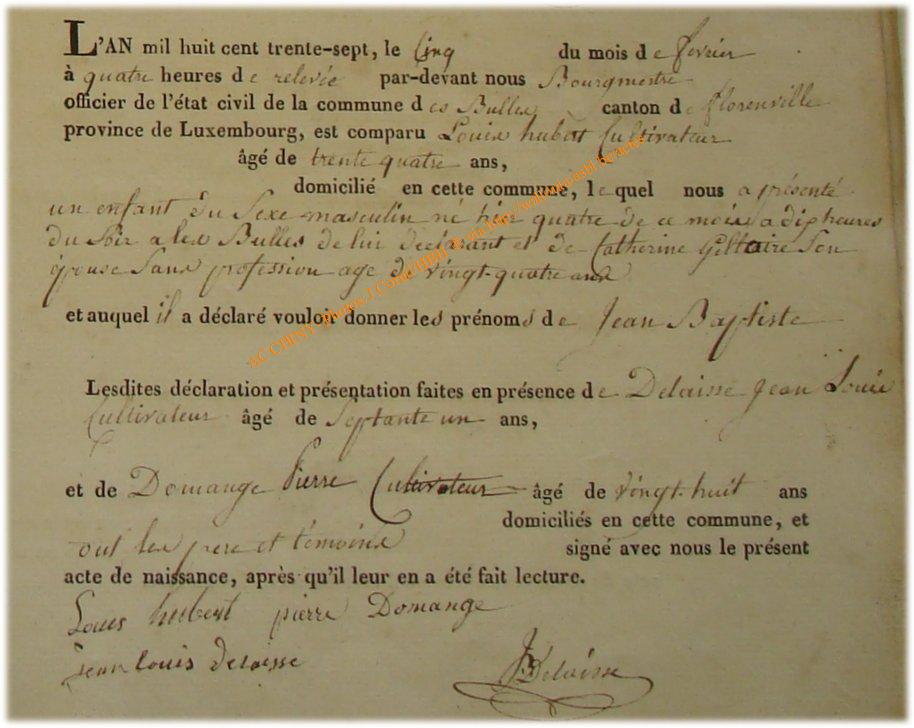 L'AN mil huit cent trente-sept, le Cinq du mois de fevrier
à quatre heures de relevée par-devant nous Bourgmestre
officier de l'état civil de la commune des Bulles canton de florenville
province de Luxembourg, est comparu Louis hubert Cultivateur
âgé de trente quatre ans,
domicilié en cette commune, lequel nous a présenté
un enfant du Sexe masculin né hier quatre de ce mois a dix heures
du Soir a les Bulles de lui déclarant et de Catherine Giltaire Son
épouse Sans profession age de vingt-quatre ans
et auquel il a déclaré vouloir donner les prénoms de Jean Baptiste
Lesdites déclaration et présentation faites en présence de Delaisse Jean Louis
Cultivateur âgé de Septante un ans,
et de Domange Pierre Cultivateur âgé de vingt-huit ans
domiciliés en cette commune, et
ont les pere et témoins signé avec nous le présent
acte de naissance, après qu'il leur en a été fait lecture.
Louis hubert pierre Domange
jean louis delaisse JBDelaisse